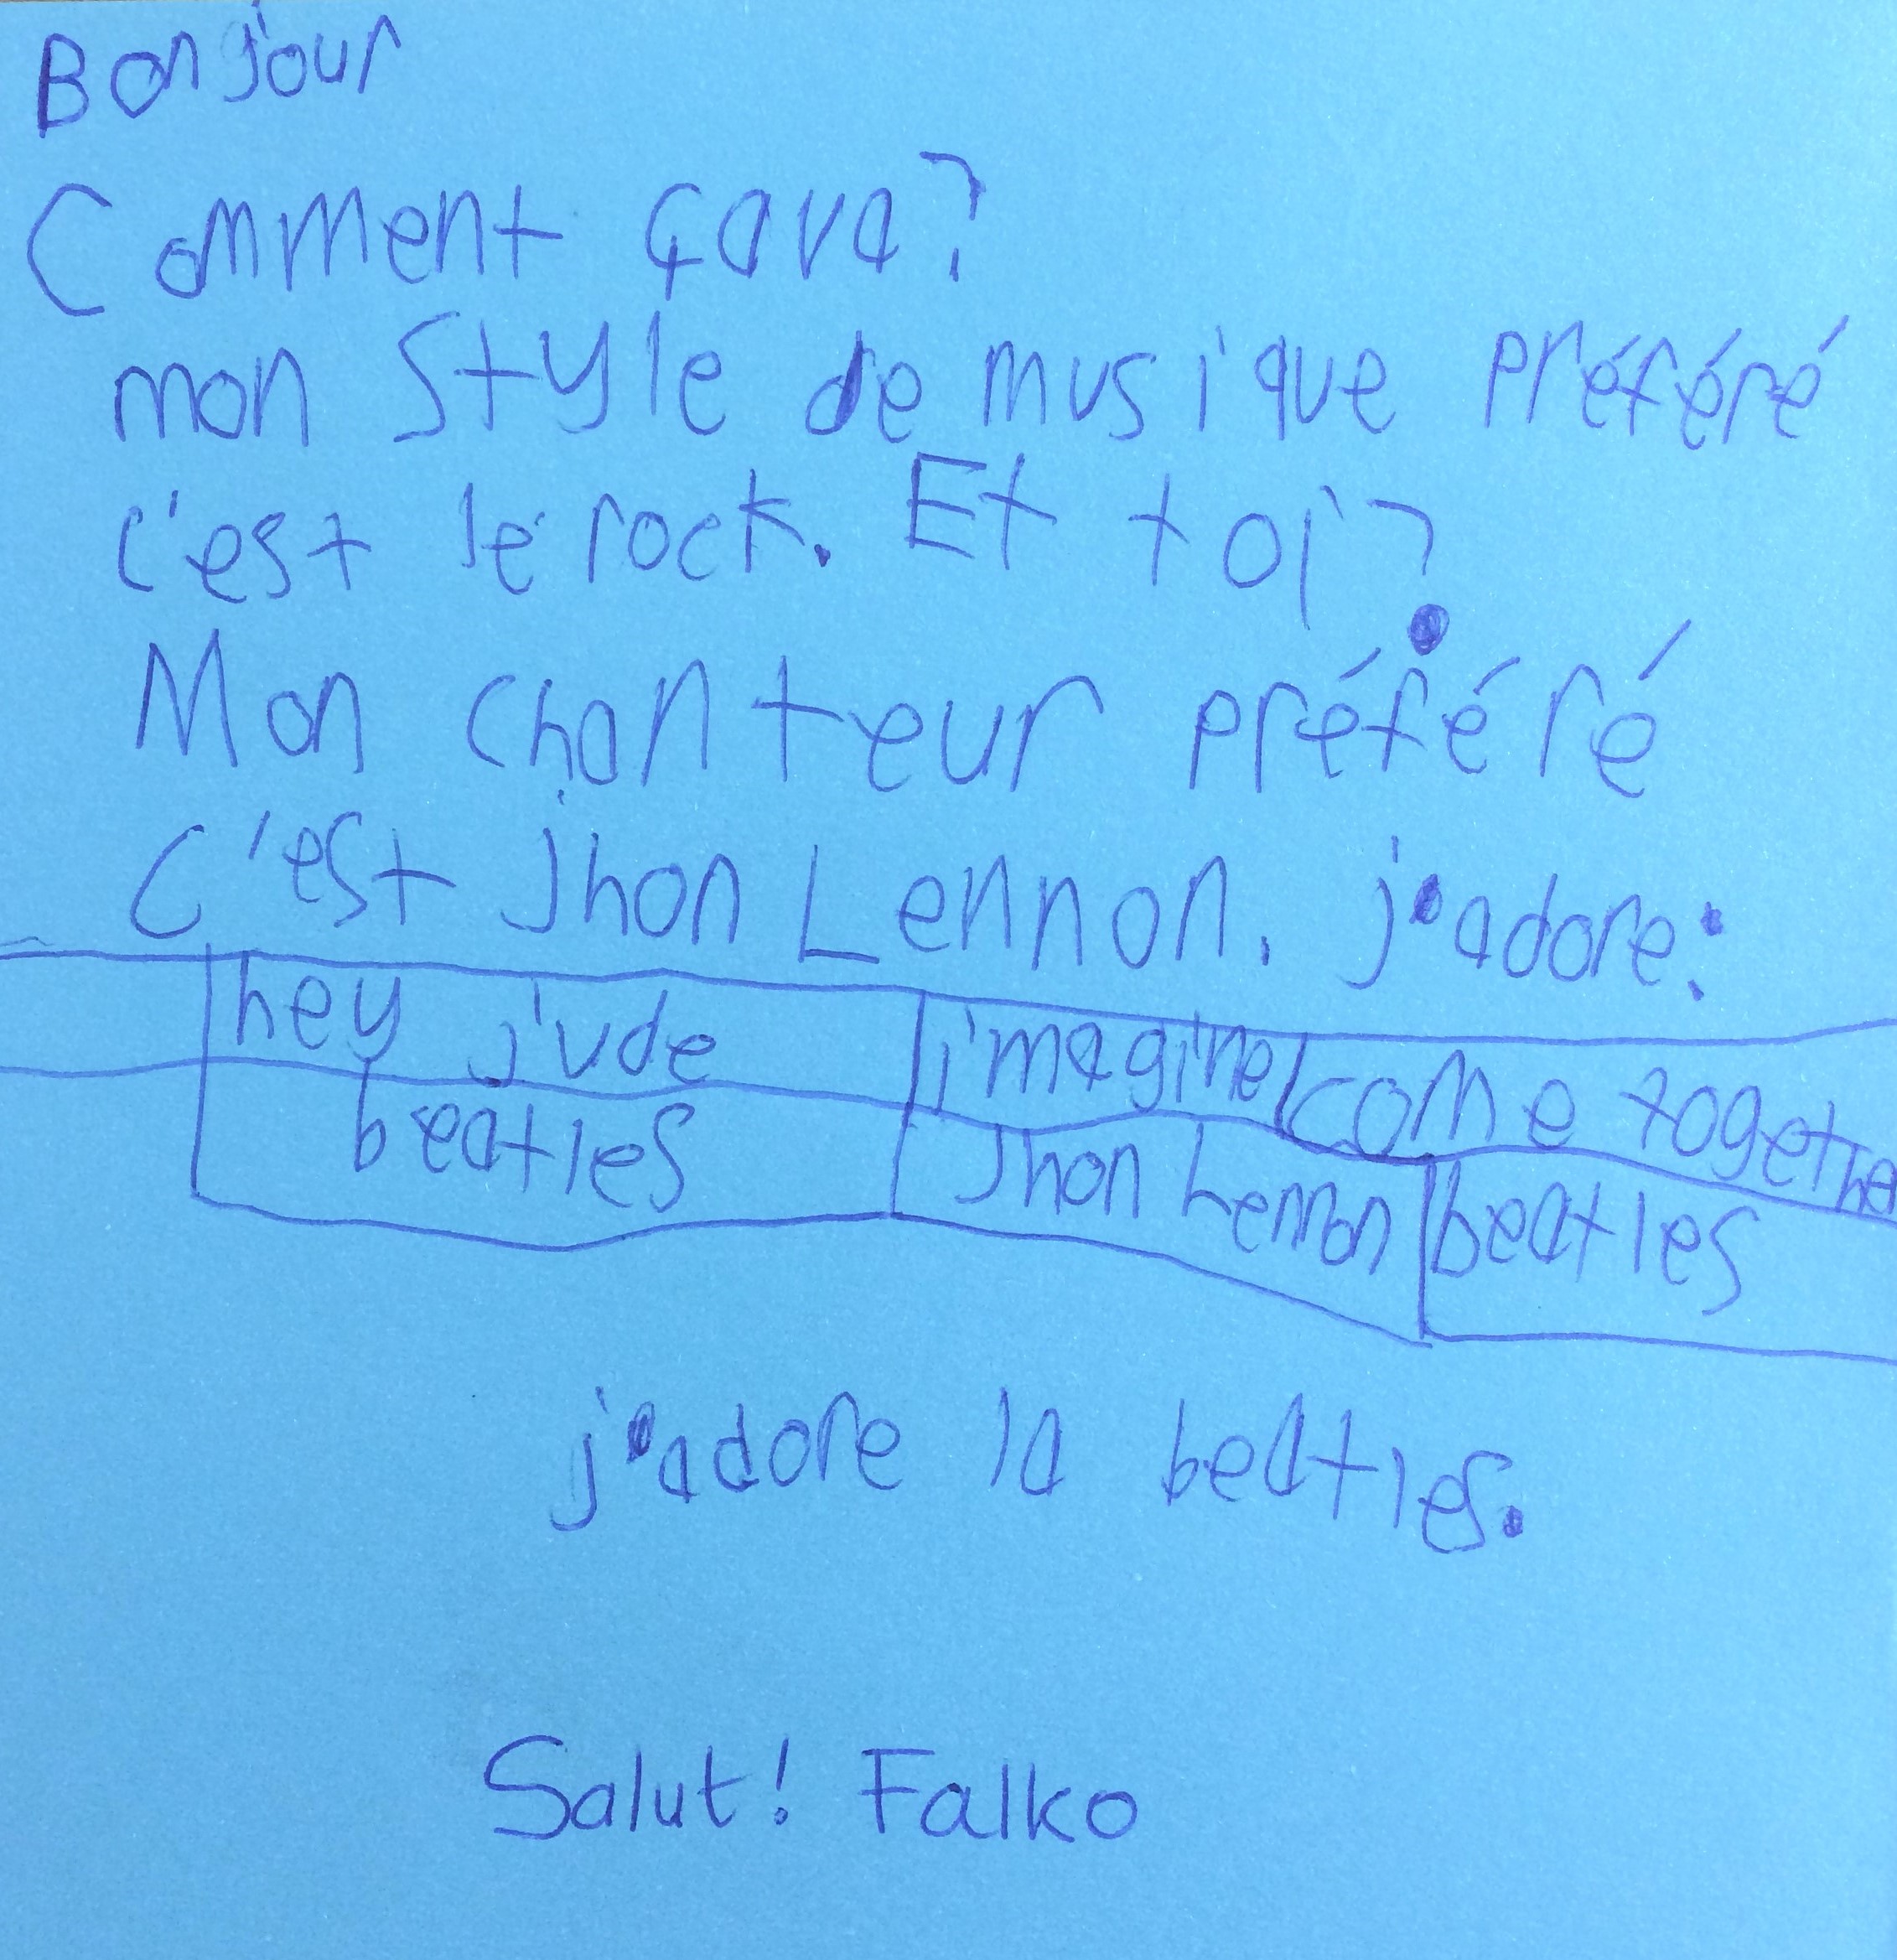 Bonjour
Comment çava?
mon style de musique préféré
c'est le rock. Et toi?
Mon chanteur préféré
c'est jhon Lennon. j'adore:
hey jude imagine come together
beatles Jhon Lennon beatles
j'adore la beatles.
Salut! Falko